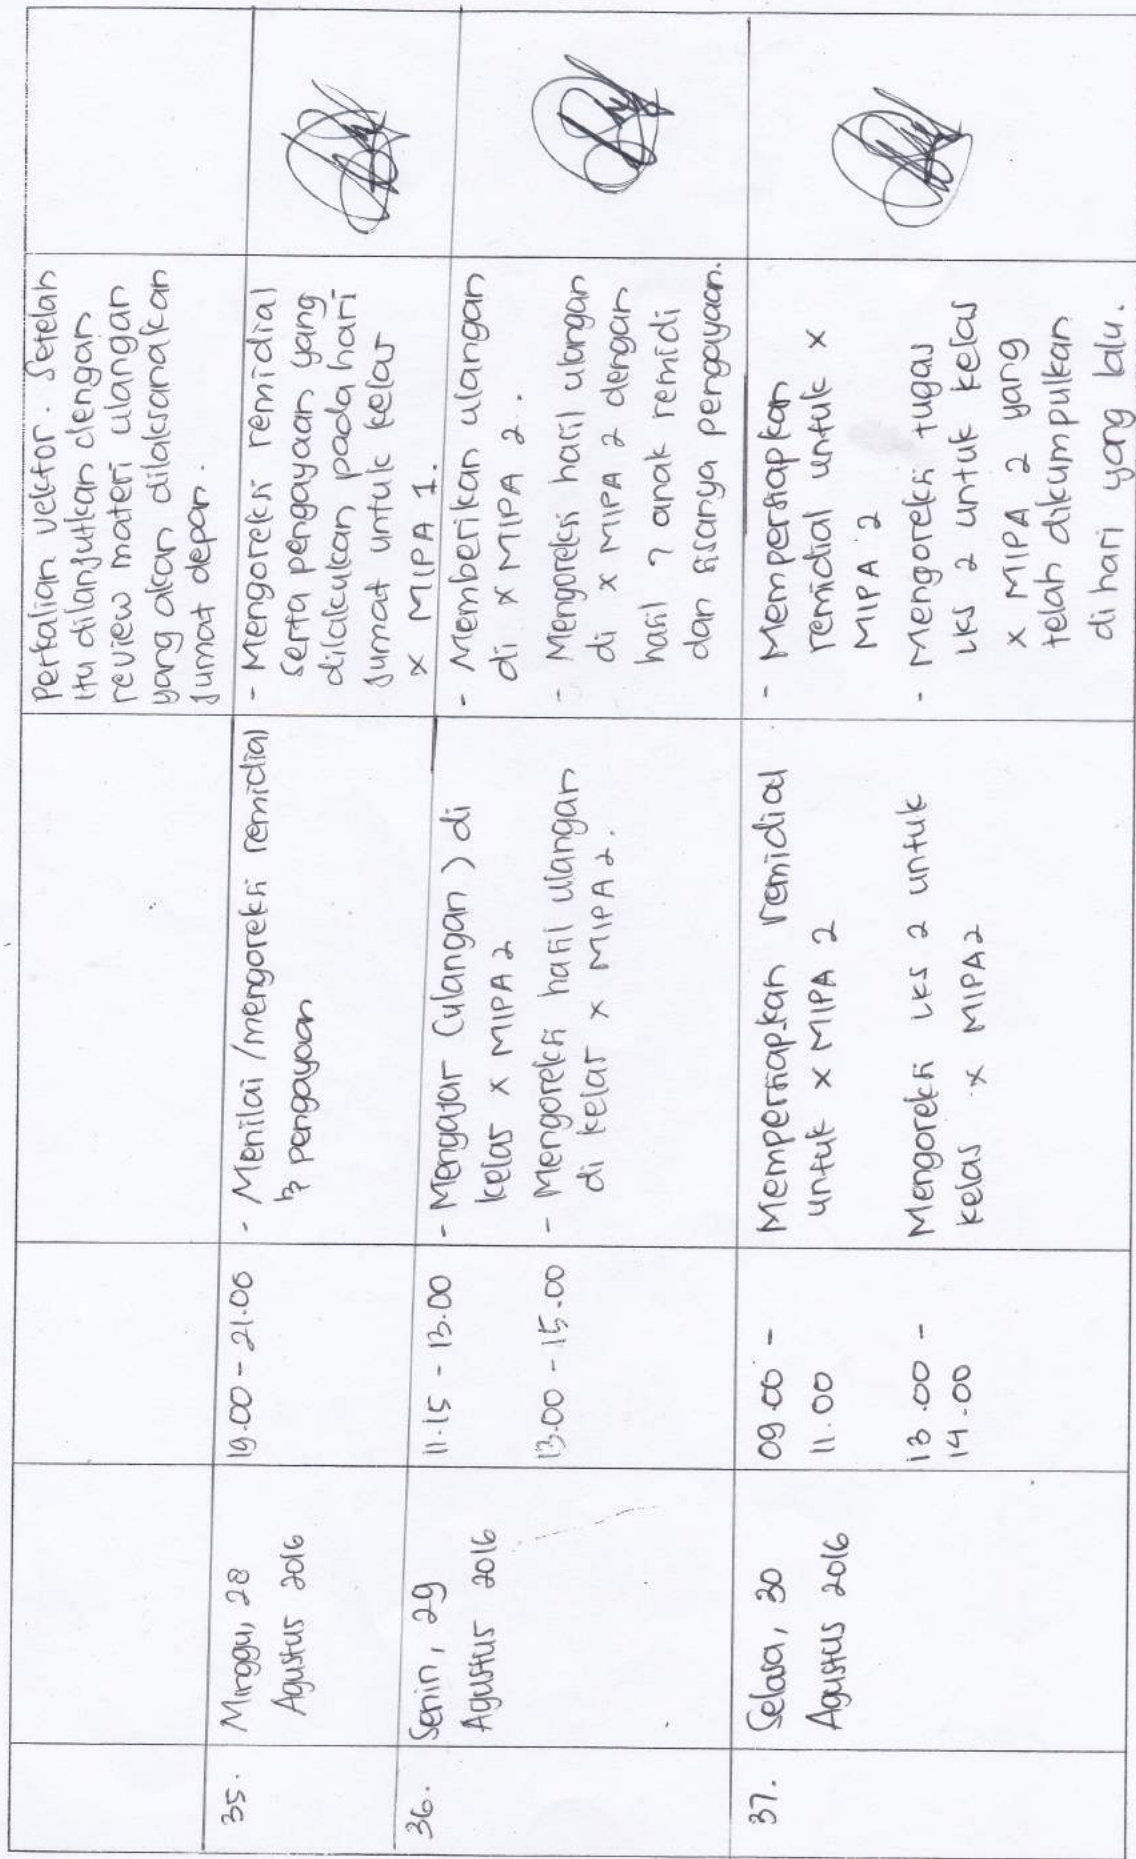 Perkalian vektor. Setelah
itu dilanjutkan dengan
review materi ulangan
yang akan dilaksanakan
Jumat depan.
35.
Minggu, 28
Agustus 2016
19.00 - 21.00
- Menilai / mengoreksi remidial
pengayaan
- Mengoreksi remidial
serta pengayaan yang
dilakukan pada hari
Jumat untuk kelas
X MIPA 1.
36.
Senin, 29
Agustus 2016
11.15 - 13.00
- Mengajar (ulangan) di
kelas X MIPA 2
- Memberikan ulangan
di X MIPA 2.
13.00 - 15.00
- Mengoreksi hasil ulangan
di kelas X MIPA 2.
- Mengoreksi hasil ulangan
di X MIPA 2 dengan
hasil 7 anak remidi
dan sisanya pengayaan.
37.
Selasa, 30
Agustus 2016
09.00 -
11.00
Mempersiapkan remidial
untuk X MIPA 2
- Mempersiapkan
remidial untuk X
MIPA 2
13.00 -
14.00
Mengoreksi LKS 2 untuk
kelas X MIPA 2
- Mengoreksi tugas
LKS 2 untuk kelas
X MIPA 2 yang
telah dikumpulkan
di hari yang lalu.